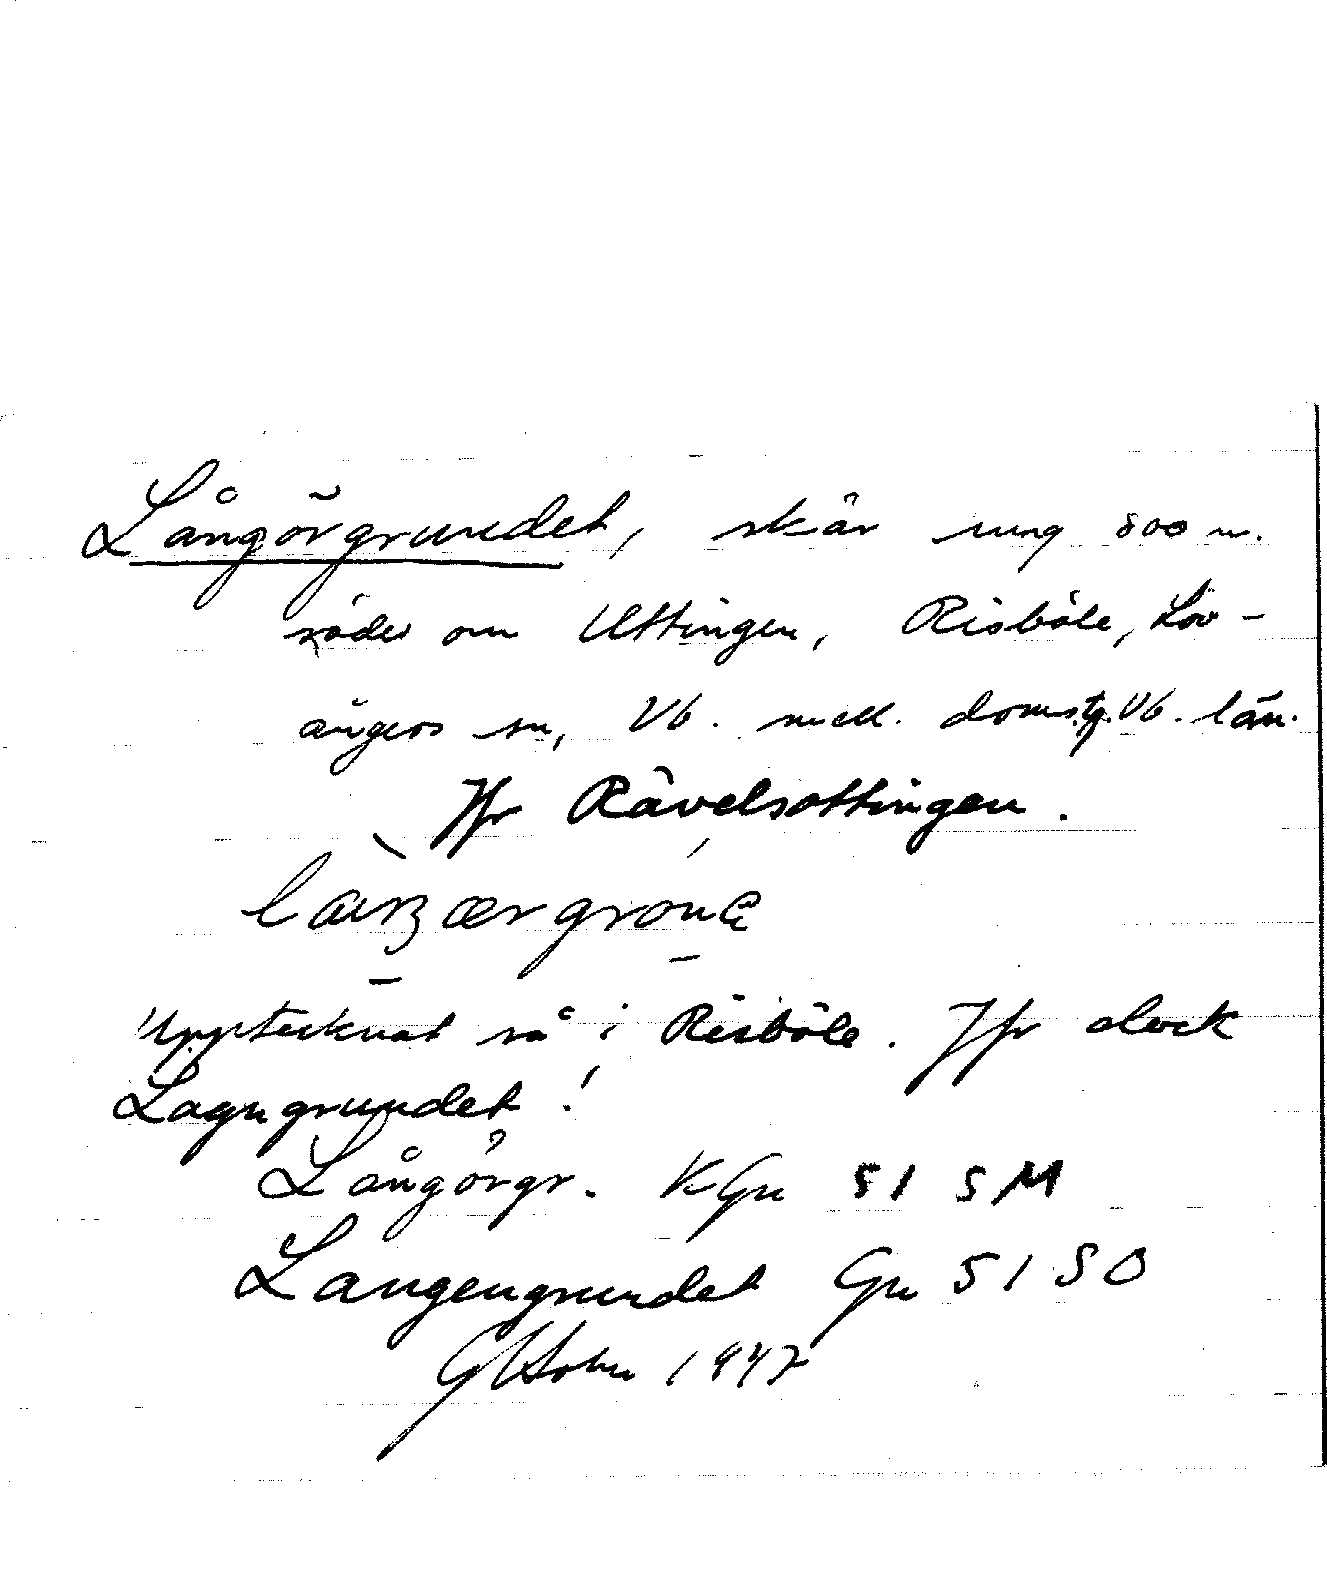 Långörgrundet, skär ung 800 m.
söder om Uttingen, Risböle, Löv-
ångers sn, Vb. mell. doms.tg. Vb. län.
Jfr Rävelsottingen.
Upptecknat så i Risböle. Jfr dock
Lagngrundet!
Långörgr. KGu 51 SM
Langengrundet Gu 51 SO
GHolm 1947